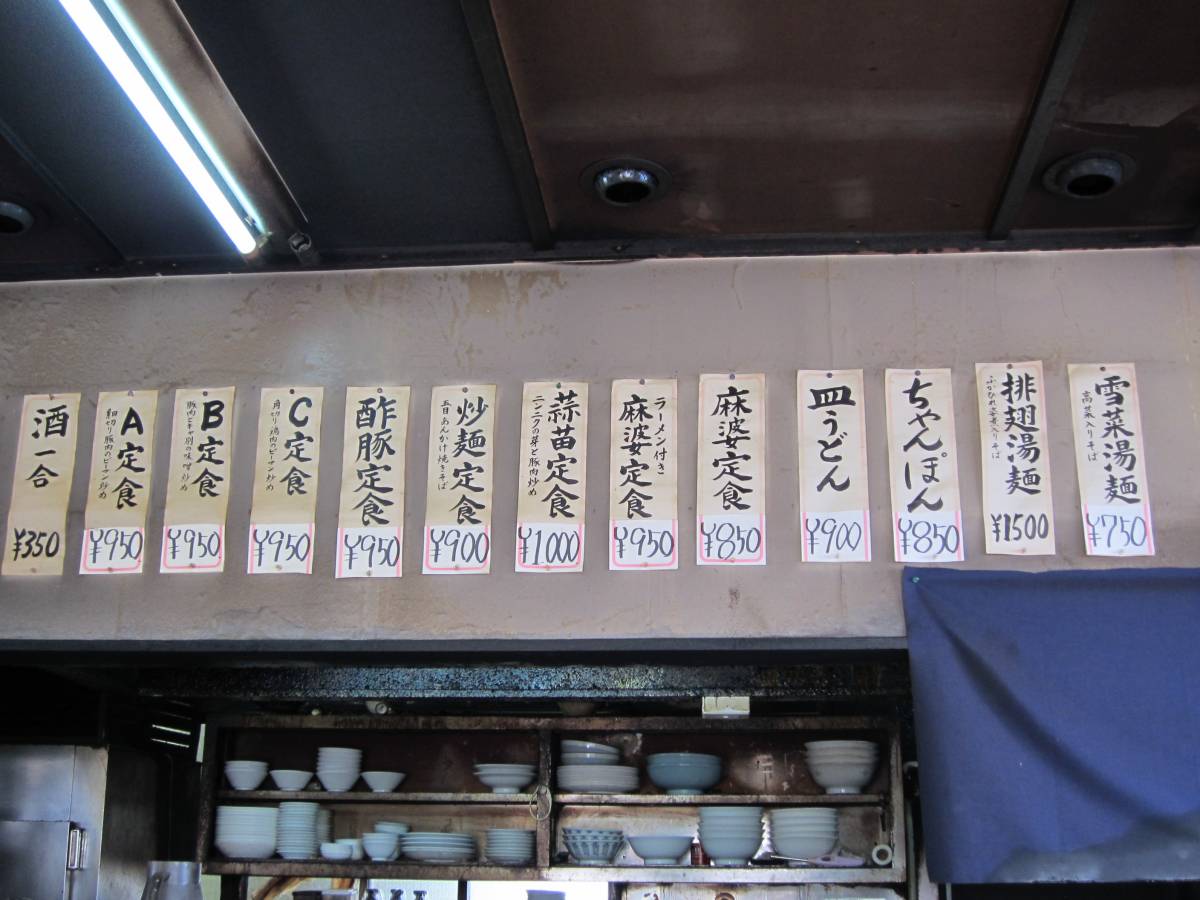 雪菜湯麺
高菜入りそば
¥750
排翅湯麺
ふかひれ姿煮入りそば
¥1500
ちゃんぽん
¥850
皿うどん
¥900
麻婆定食
¥850
ラーメン付き
麻婆定食
¥950
蒜苗定食
ニンニクの芽と豚肉炒め
¥1000
炒麺定食
五目あんかけ焼きそば
¥900
酢豚定食
¥950
C定食
角切り鶏肉のピーマン炒め
¥950
B定食
豚肉とキャベツの味噌炒め
¥950
A定食
細切り豚肉のピーマン炒め
¥950
酒一合
¥350